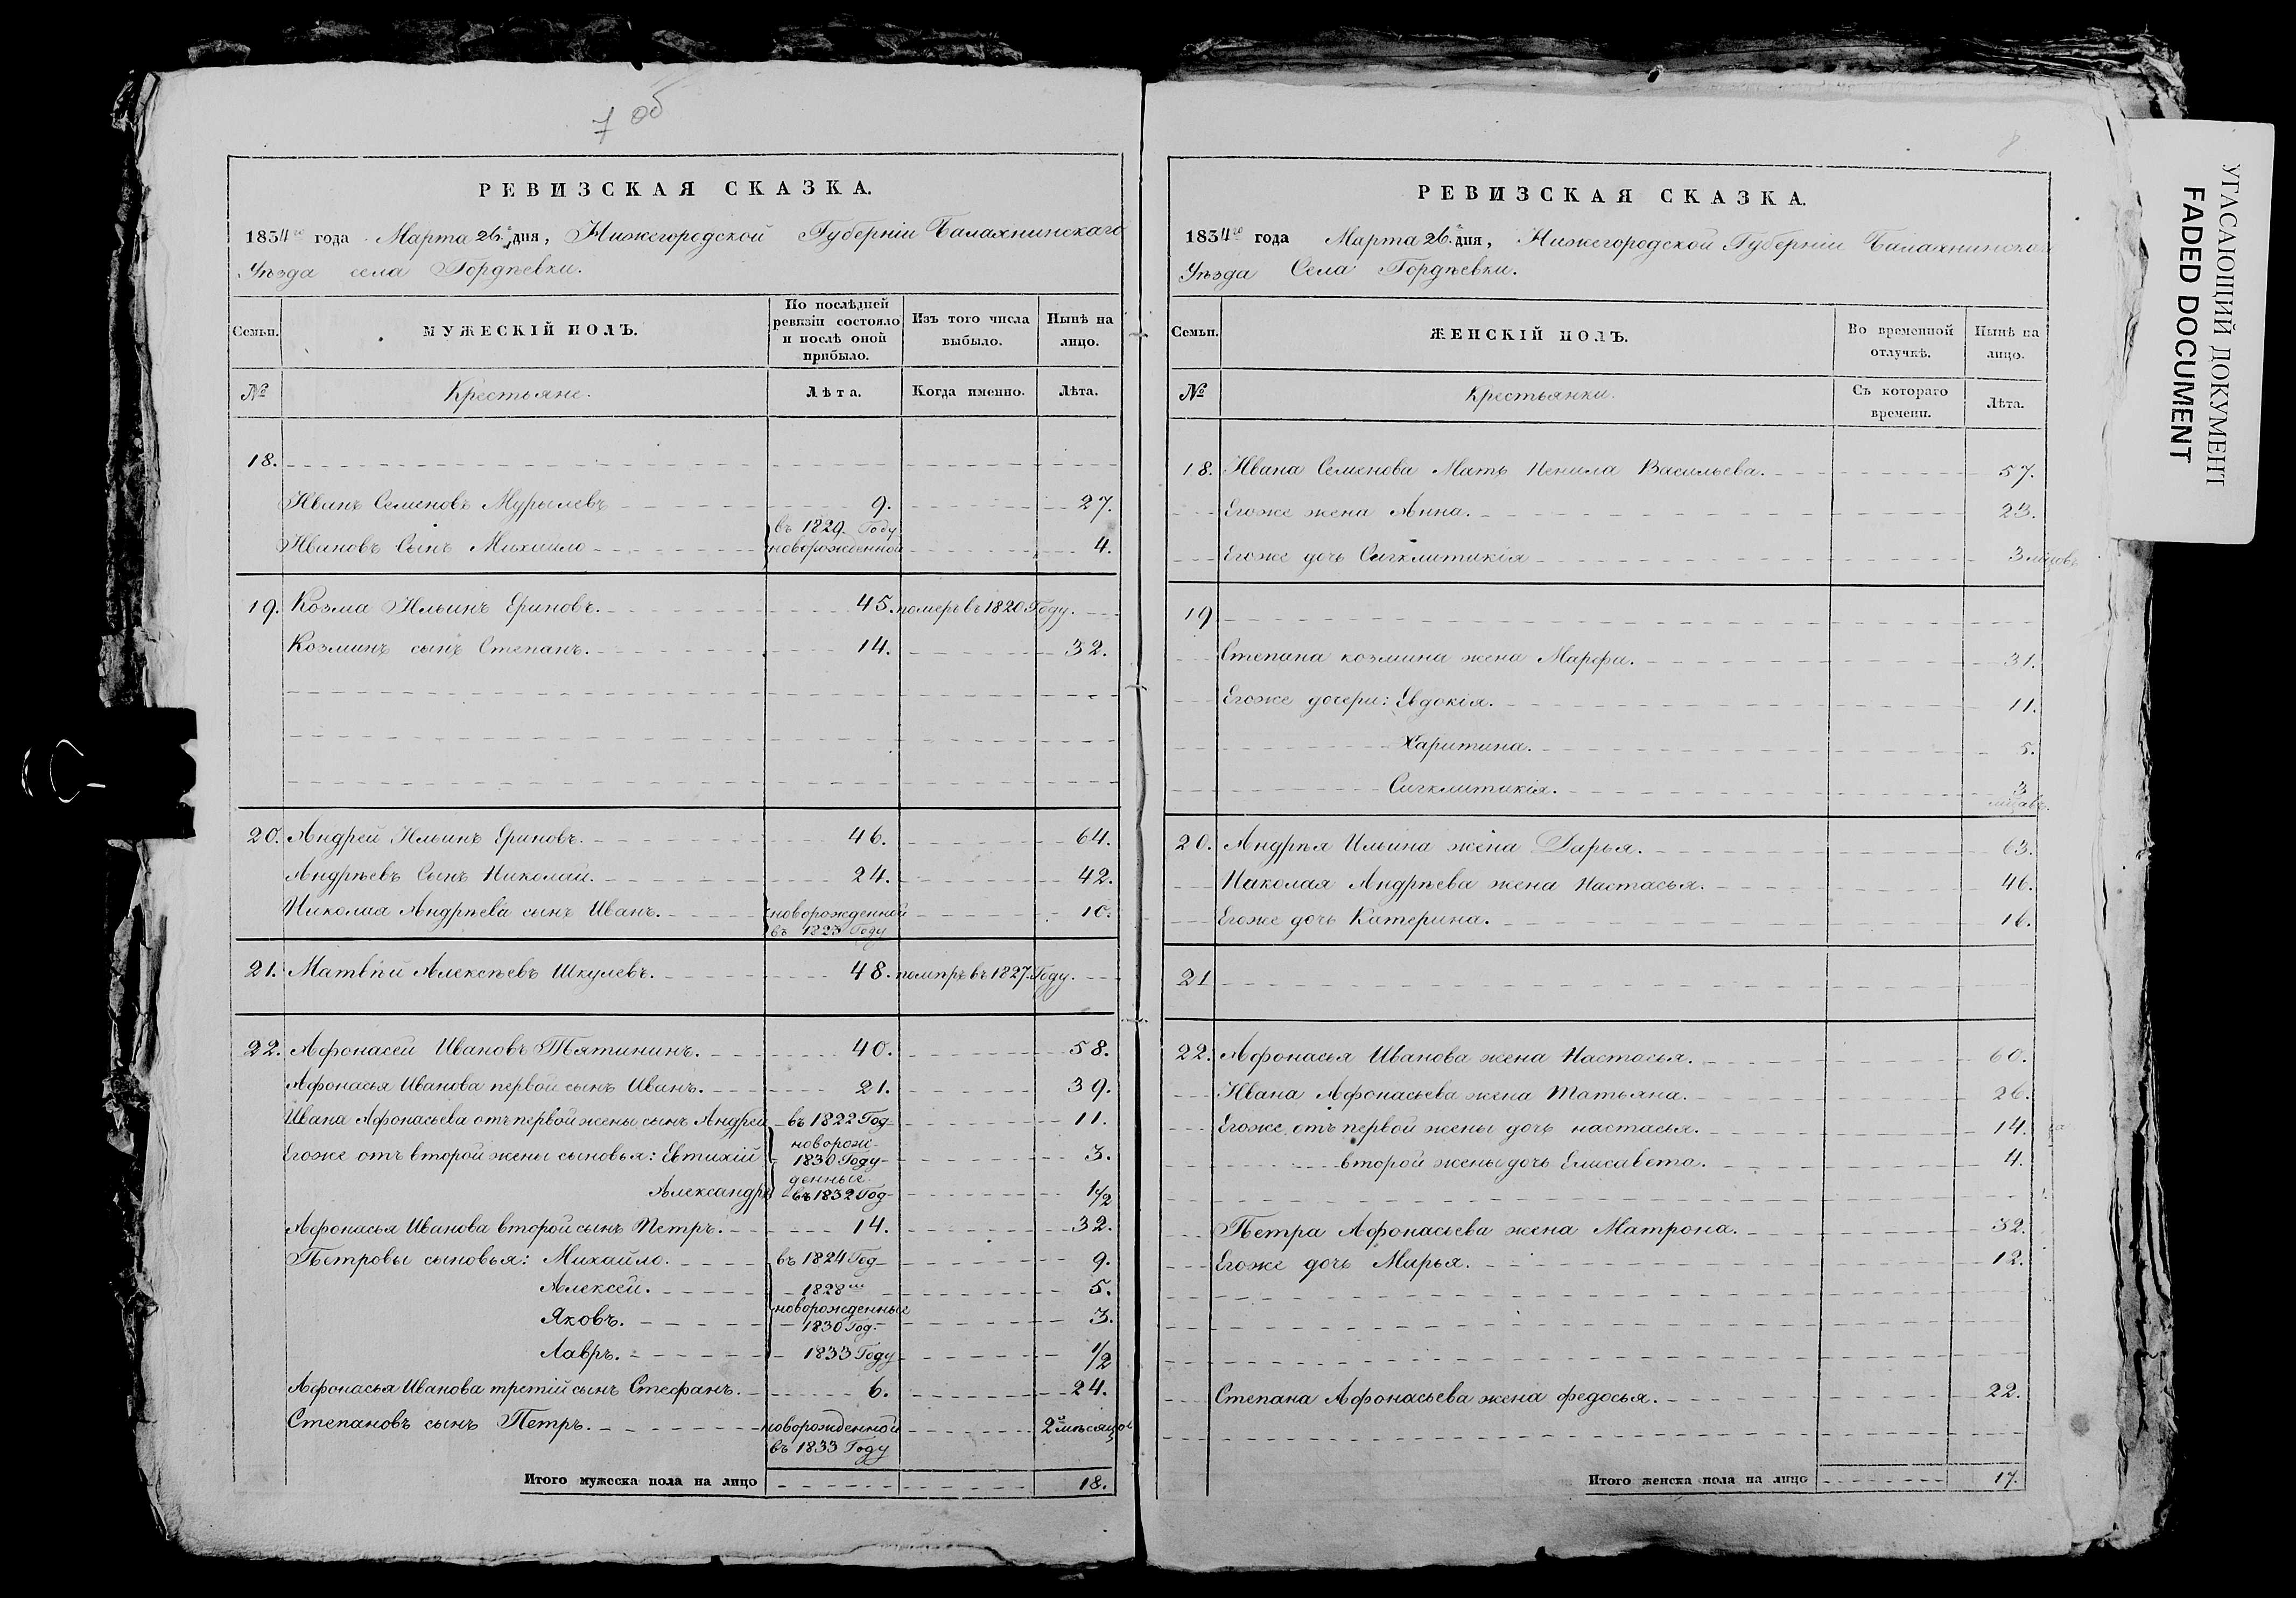 7 об
РЕВИЗСКАЯ СКАЗКА.
1834го года Марта 26 дня, Нижегородской Губерніи Балахнинскаго
Уѣзда села Гордѣевки.
Семьи. МУЖЕСКІЙ ПОЛЪ. По послѣдней ревизіи состояло и послѣ оной прибыло. Изъ того числа выбыло. Нынѣ на лицо.
№ Крестьяне. Лѣта. Когда именно. Лѣта.
18.
Иванъ Семеновъ Мурылевъ 9. 27.
Ивановъ Сынъ Михайло въ 1829. Году новорожденной 4.
19. Козма Ильинъ Ериновъ. 45. померъ въ 1820 Году.
Козминъ сынъ Степанъ. 14. 32.
20. Андрей Ильинъ Ериновъ. 46. 64.
Андрѣевъ Сынъ Николай. 24. 42.
Николая Андрѣева сынъ Иванъ. новорожденной въ 1823 Году 10.
21. Матвѣй Алексѣевъ Шкулевъ. 48. помѣръ въ 1827. Году.
22. Афонасей Ивановъ Тятининъ. 40. 58.
Афонасья Иванова первой сынъ Иванъ. 21. 39.
Ивана Афонасьева отъ первой жены сынъ Андрей въ 1822 Год 11.
Егоже отъ второй жены сыновья: Евтихій новорож- 1830 Году 3.
Александръ денные въ 1832 Год 1 1/2
Афонасья Иванова второй сынъ Петръ. 14. 32.
Петровы сыновья: Михайло. въ 1824 Год 9.
Алексей. 1828 5.
Яковъ. новорожденные 1830 Год 3.
Лавръ. 1833 Году 1/2
Афонасья Иванова третій сынъ Стефанъ. 6. 24.
Степановъ сынъ Петръ. новорожденной въ 1833 Году 2 мѣсяцо
Итого мужеска пола на лицо 18.
8
РЕВИЗСКАЯ СКАЗКА.
1834го года Марта 26. дня, Нижегородской Губерніи Балахнинскаго
Уѣзда Села Гордѣевки.
Семьи. ЖЕНСКІЙ ПОЛЪ. Во временной отлучкѣ. Нынѣ на лицо.
№ Крестьянки. Съ котораго времени. Лѣта.
18. Ивана Семенова Мать Ненила Васильева. 57.
Егоже жена Анна. 23.
Егоже дочь Сигклитикія 3
19
Степана козмина жена Марфа. 31.
Егоже дочери: Евдокія. 11.
Харитина. 5.
Сигклитикія. 3
20. Андрѣя Ильина жена Дарья. 63.
Николая Андрѣева жена Настасья. 46.
Егоже дочь Катерина. 16.
21
22. Афонасья Иванова жена Настасья. 60.
Ивана Афонасьева жена Татьяна. 26.
Егоже отъ первой жены дочь настасья. 14.
второй жены дочь Елисавета. 4.
Петра Афонасьева жена Матрона. 32.
Егоже дочь Марья. 12.
Степана Афонасьева жена федосья. 22.
Итого женска пола на лицо 17.
УГАСАЮЩИЙ ДОКУМЕНТ
FADED DOCUMENT